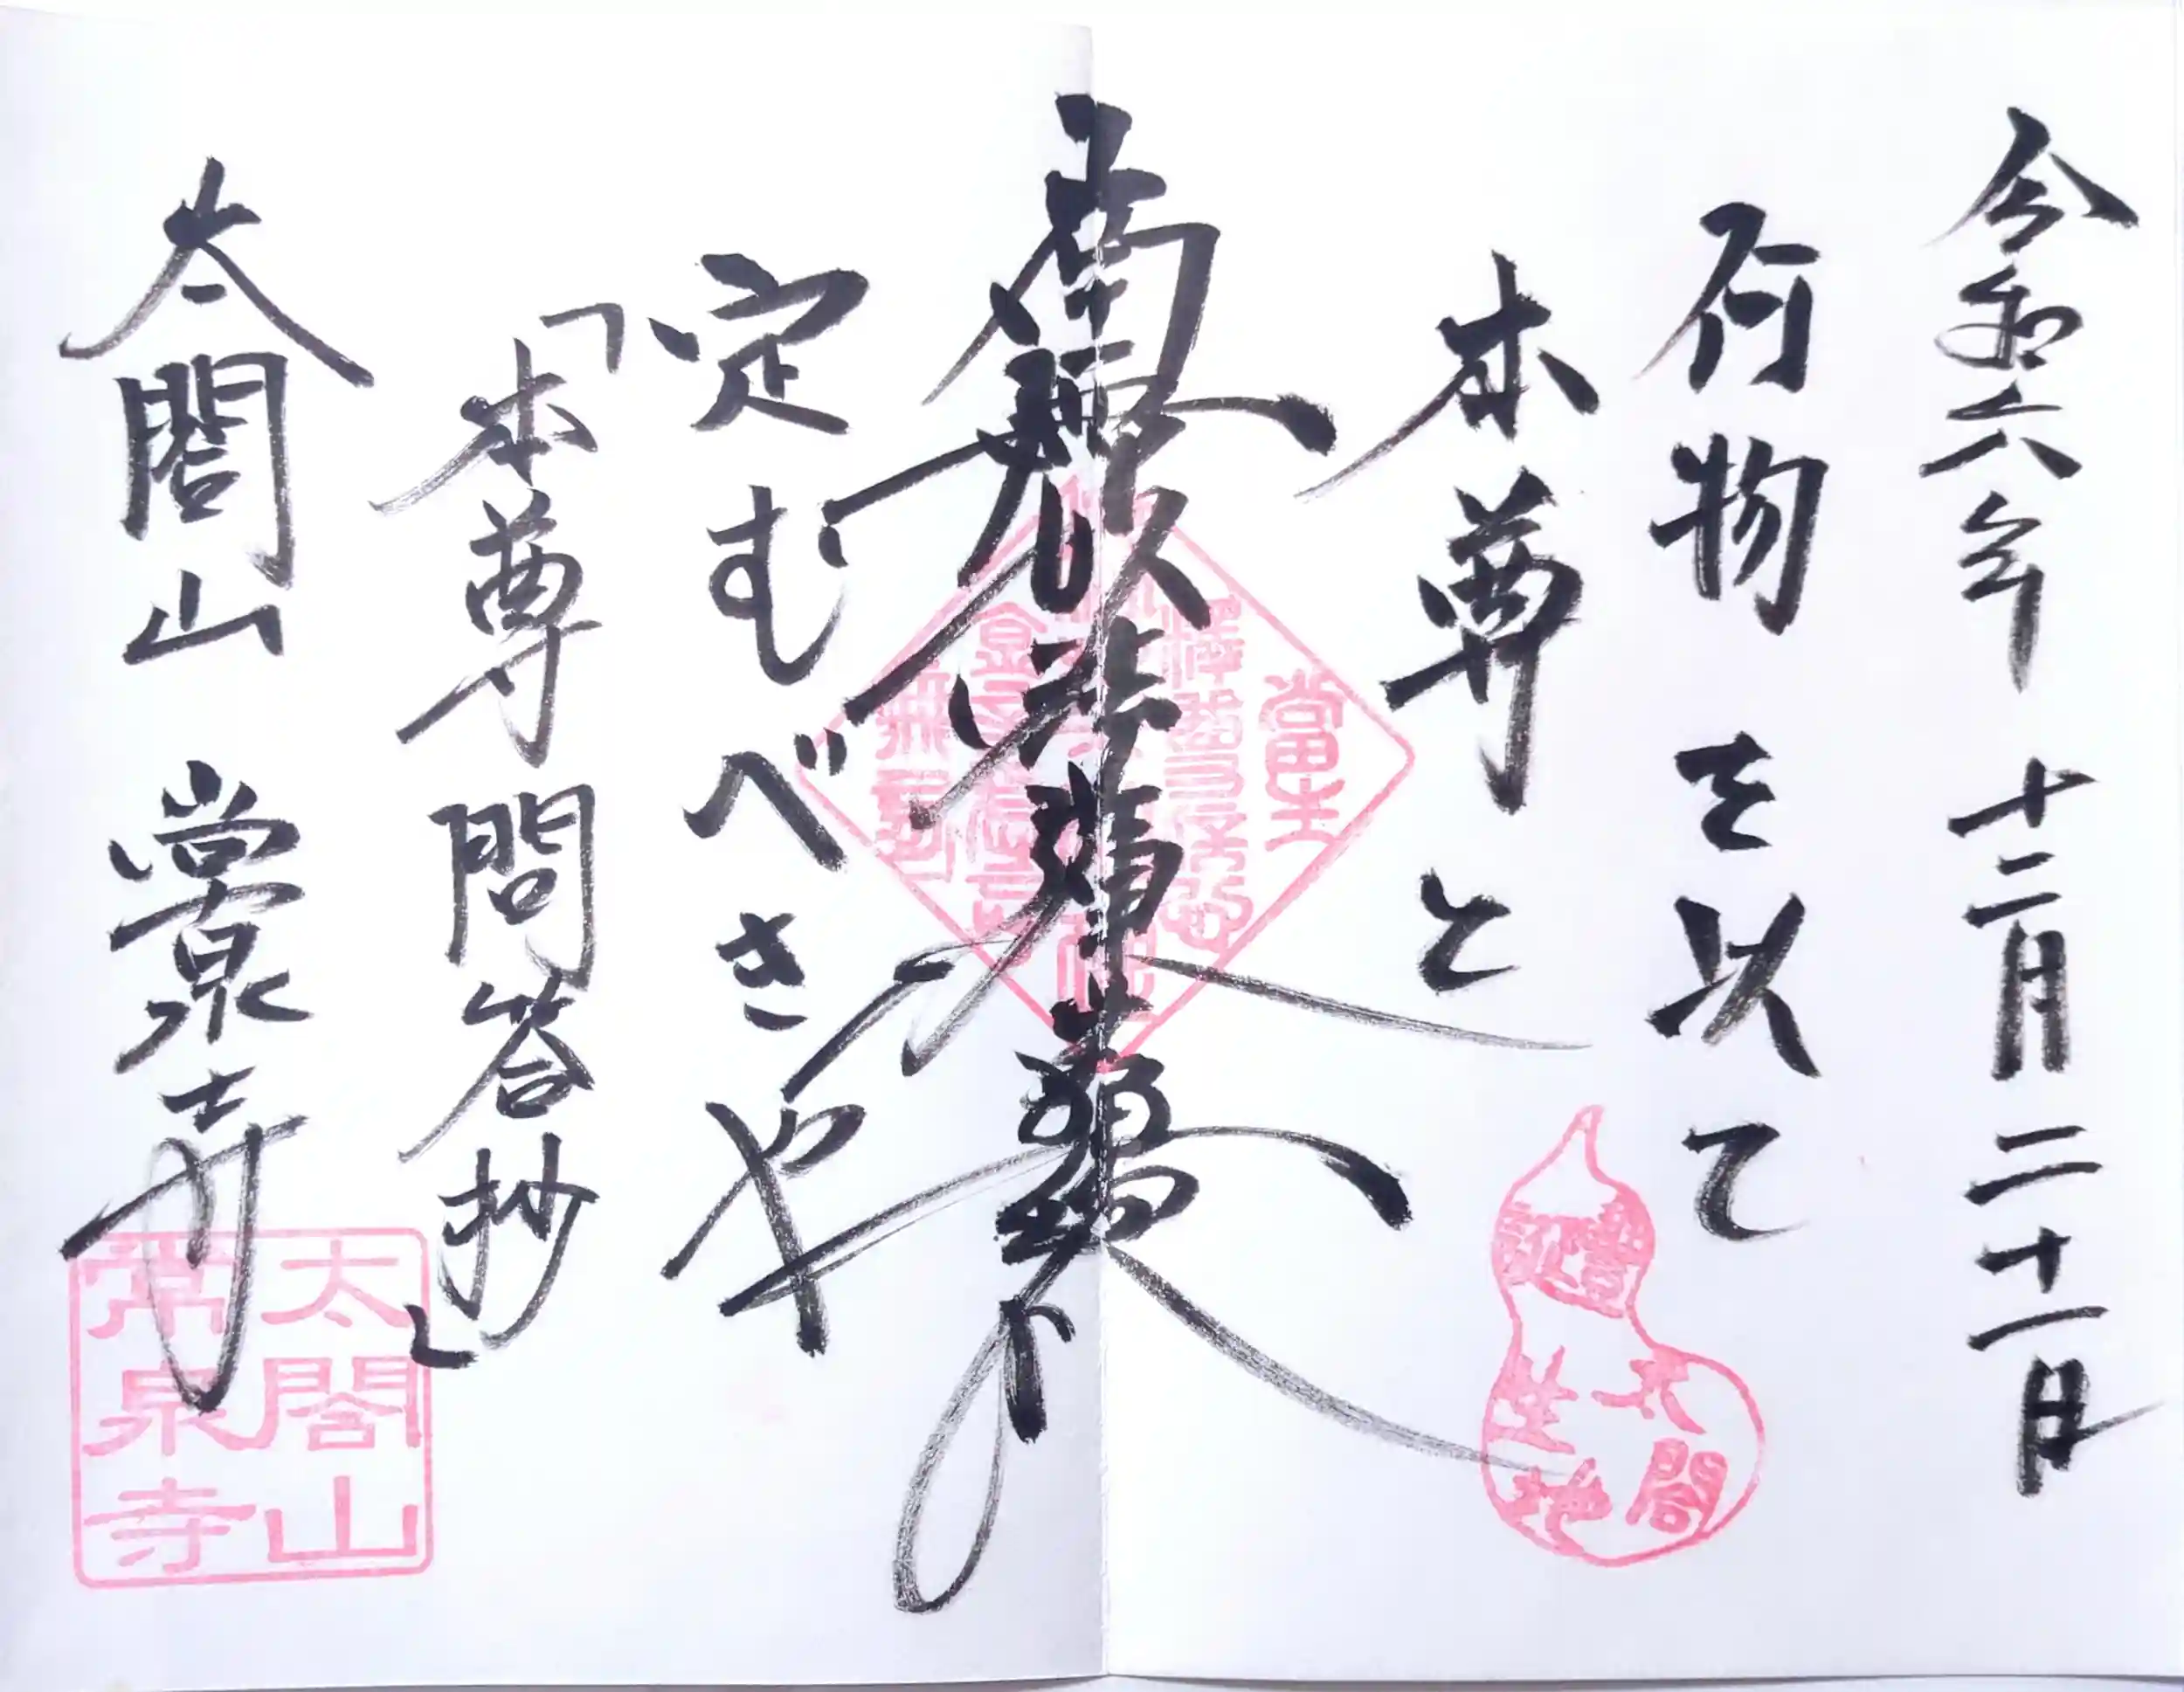 令和六年 十二月二十一日
何物を以て
本尊と
南無妙法蓮華経
定むべきや
「本尊問答抄」
太閤山 常泉寺
豊太閤
誕生地
太閤山
常泉寺